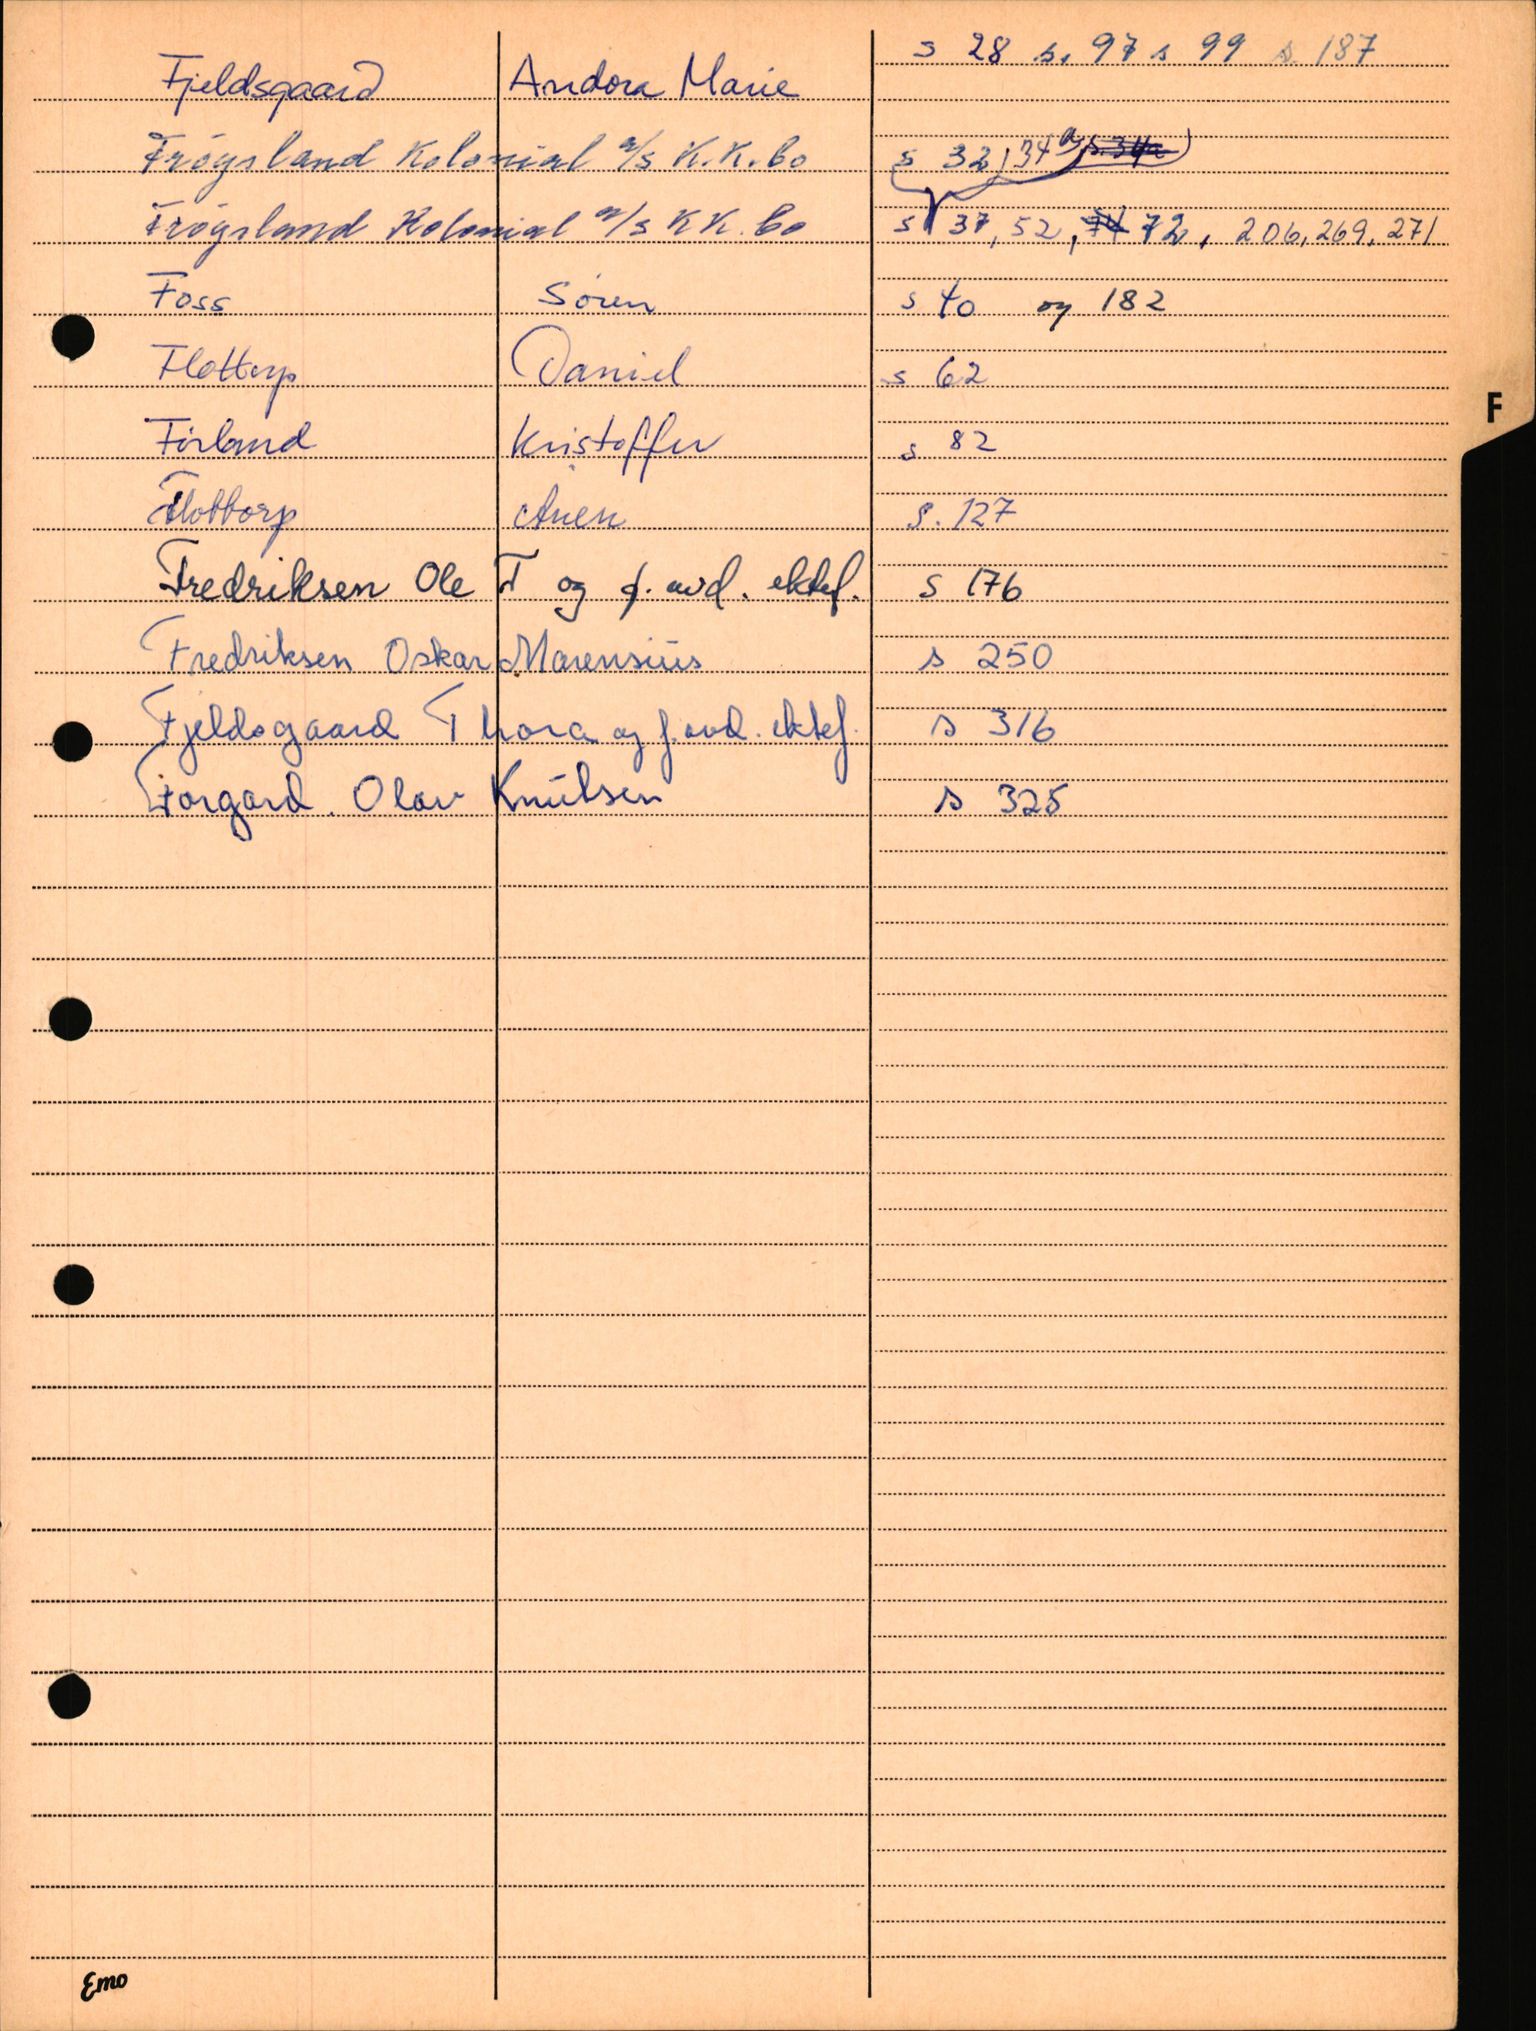 Fjeldsgaard Andora Marie s 28 s. 97 s 99 s. 187
Frøysland Kolonial a/s K.K.bo s 32, 34 og s. 34a
Frøysland Kolonial a/s K K. bo s 37, 52, 72, 206, 269, 271
Foss Sören s 40 og 182
Flottorp Daniel s 62
Förland Kristoffer s 82
Flottorp Anen s. 127
Fredriksen Ole T og f. avd. ektef. s 176
Fredriksen Oskar Marensius s 250
Fjeldsgaard Thora og f. avd. ektef. s 316
Forgard. Olav Knutsen s 325
F
Emo